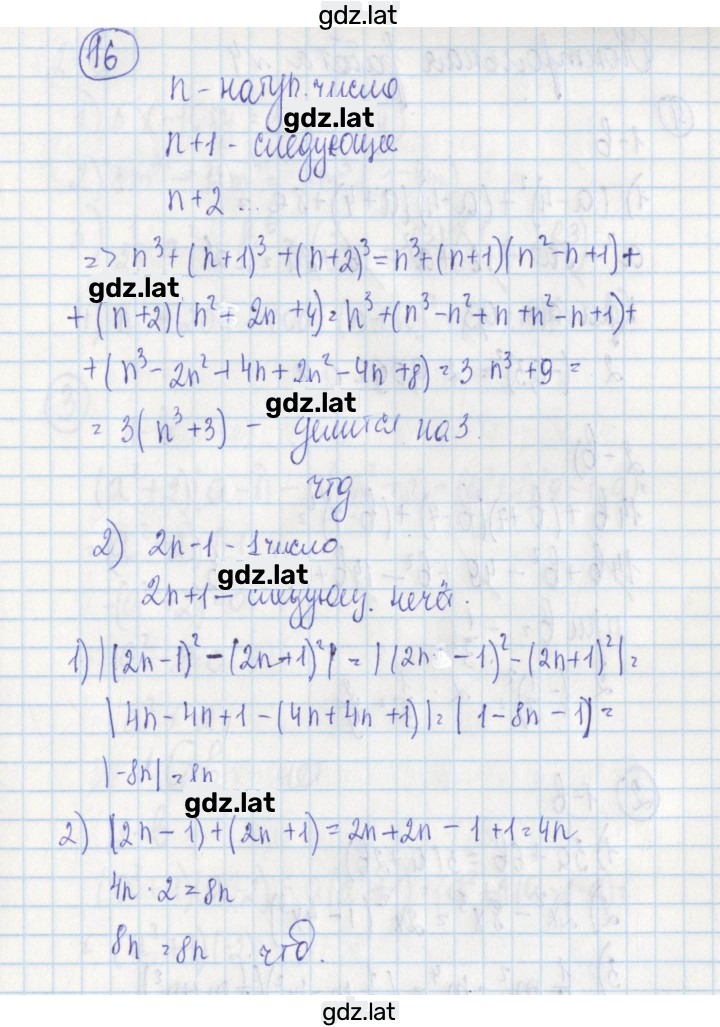 gdz.lat
16
n - натур. число
gdz.lat
n+1 - следующее
n+2 ...
=> n³+(n+1)³+(n+2)³=n³+(n+1)(n²-n+1)+
gdz.lat
+(n+2)(n²-2n+4)=n³+(n³-n²+n+n²-n+1)+
+(n³-2n²+4n+2n²-4n+8)=3 n³+9=
gdz.lat
=3(n³+3) - делится на 3.
чтд
2) 2n-1 - 1 число
gdz.lat
2n+1 - следующ. нечёт.
1) |(2n-1)²-(2n+1)²| = |(2n-1)²-(2n+1)²|=
|4n-4n+1-(4n+4n+1)|=|1-8n-1|=
|-8n|=8n
gdz.lat
2) (2n-1)+(2n+1)=2n+2n-1+1=4n
4n·2=8n
8n=8n чтд.
gdz.lat